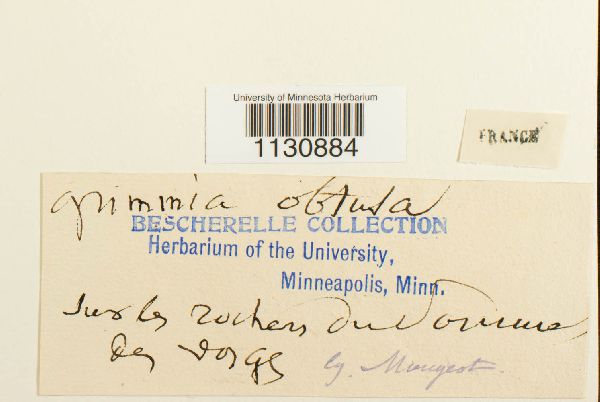 University of Minnesota Herbarium
1130884
FRANCE
Grimmia obtusa
BESCHERELLE COLLECTION
Herbarium of the University,
Minneapolis, Minn.
Sur les rochers du
des Vosges
lg. Mougeot.